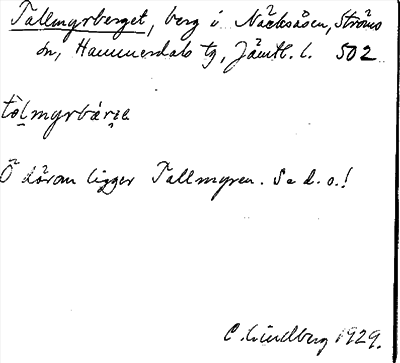 Tallmyrberget, berg i Näcksåsen, Ströms
sn, Hammerdals tg, Jämtl. l. 502
tòlmyrbærje
Ö därom ligger Tallmyren. Se d. o.!
C. Lindberg 1929.